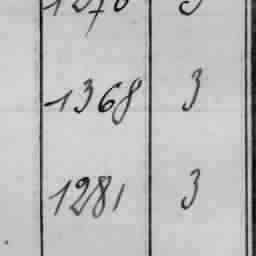 1368 3
1281 3